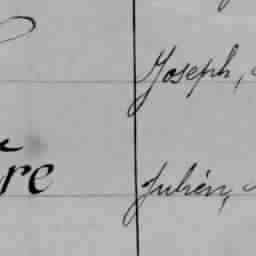 Joseph,
re Julien,